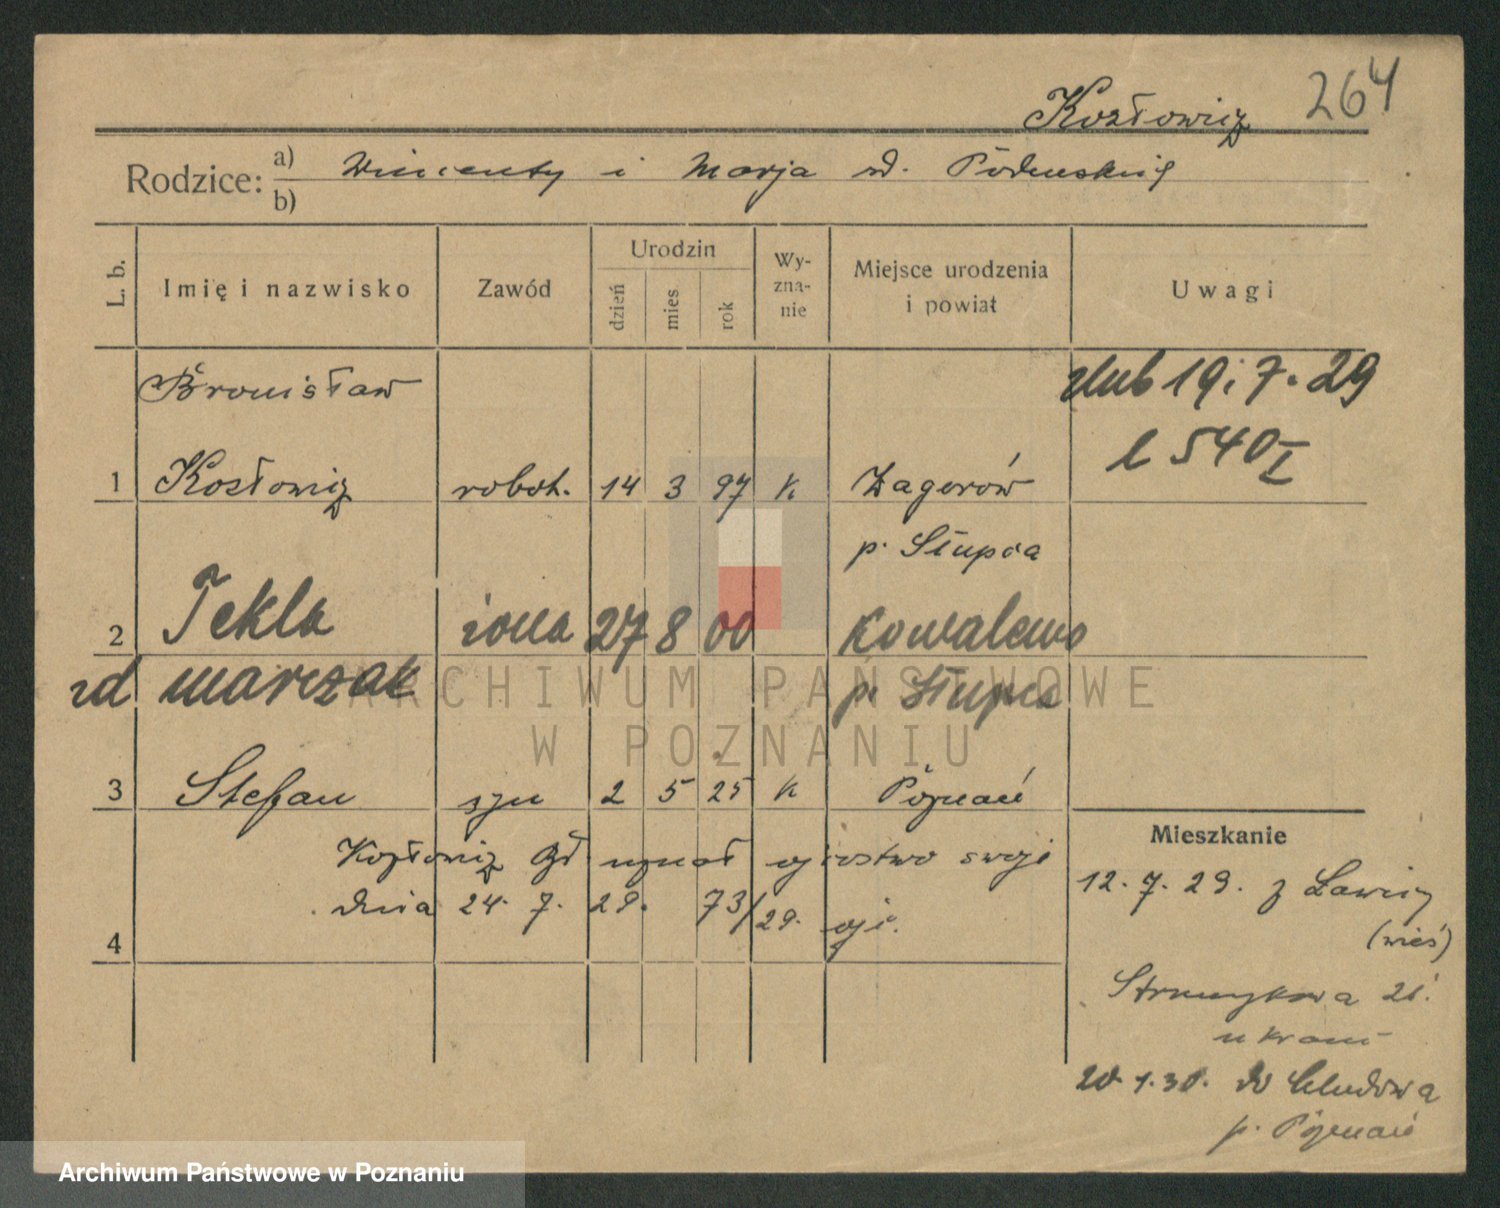 264
Kozłowicz
Rodzice: a) Wincenty i Marja zd.
b)
L. b. Imię i nazwisko Zawód Urodzin dzień mies rok Wyznanie Miejsce urodzenia i powiat Uwagi
Bronisław ślub 19.7.29
l 540 I
1 Kozłowicz robot. 14 3 97 k Zagorów
p. Słupca
2 Tekla żona 27 8 00 Kowalewo
zd marczak p. Słupca
3 Stefan syn 2 5 25 k Poznań
Mieszkanie
Kozłowicz uznał ojcostwo swoje
12.7.29. z Ławicy
dnia 24.7.29. 73/29.
(wieś)
4
Strumykowa 21.
20.1.30. do Chludowa
p. Poznań
ARCHIWUM PAŃSTWOWE
W POZNANIU
Archiwum Państwowe w Poznaniu